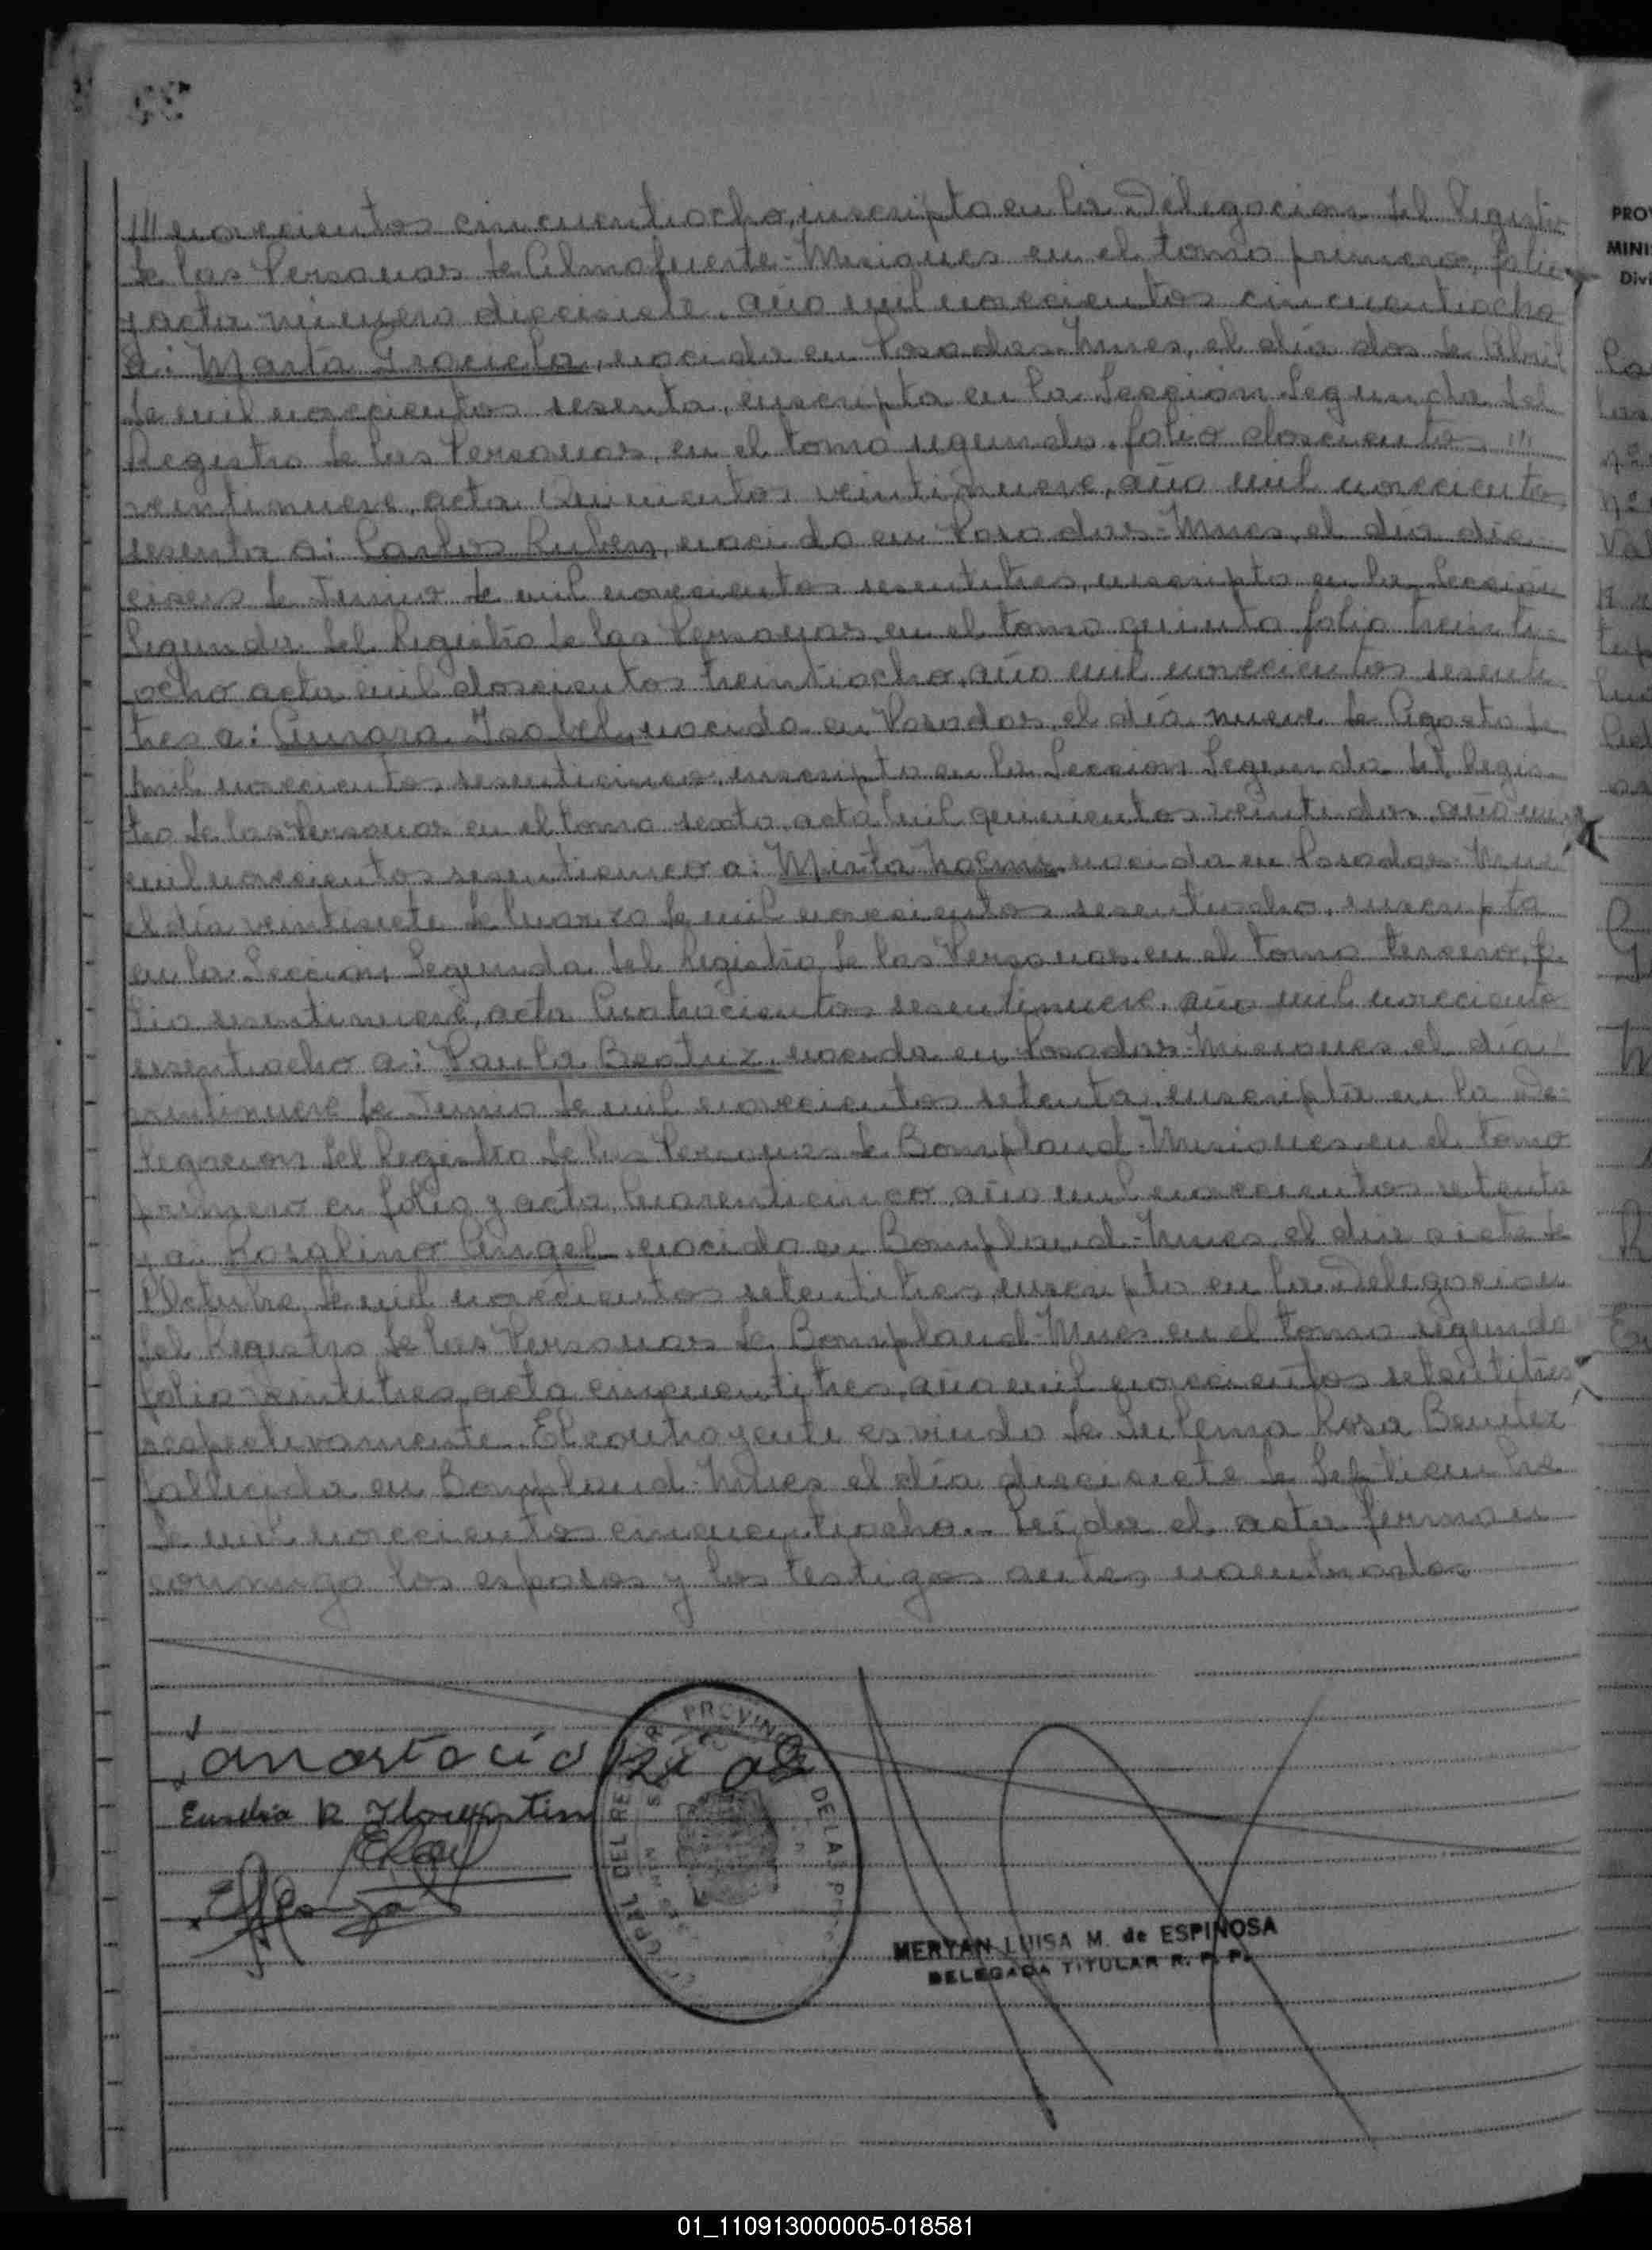 /// novecientos cincuentiocho, inscripta en la Delegación del Registro
de las Personas de Almafuerte-Misiones en el tomo primero, folio
y acta número diecisiete, año mil novecientos cincuentiocho
a: Marta Graciela, nacida en Posadas-Mnes, el día dos de Abril
de mil novecientos sesenta, inscripta en la Sección Segunda del
Registro de las Personas, en el tomo segundo, folio doscientos ///
veintinueve, acta Quinientos veintinueve, año mil novecientos
sesenta a: Carlos Ruben, nacido en Posadas-Mnes, el día die
ciseis de Junio de mil novecientos sesentitres, inscripto en la Sección
Segunda del Registro de las Personas, en el tomo quinto folio treinti-
ocho acta mil doscientos treintiocho, año mil novecientos sesenti
tres a: Isabel, nacida en Posadas, el día nueve de Agosto de
mil novecientos sesenticinco, inscripta en la Sección Segunda del Regis-
tro de las Personas en el tomo sexto, acta mil quinientos veintidos, año
mil novecientos sesenticinco a: Mirta Noemi nacida en Posadas-Mnes
el día veintisiete de Marzo de mil novecientos sesentiocho, inscripta
en la Sección Segunda del Registro de las Personas, en el tomo tercero, fo
lio sesentinueve, acta Cuatrocientos sesentinueve, año mil novecientos
sesentiocho a: Paula Beatriz, nacida en Posadas-Misiones el día
veintinueve de Junio de mil novecientos setenta, inscripta en la De-
legación del Registro de las Personas de Bompland-Misiones en el tomo
primero en folio y acta Cuarenticinco, año mil novecientos setenta
y a: Rosalino Angel, nacido en Bompland-Mnes, el día siete de
Octubre de mil novecientos setentitres, inscripto en la Delegación
del Registro de las Personas de Bompland-Mnes en el tomo segundo
folio veintitres, acta cincuentitres, año mil novecientos setentitres
respectivamente. El contrayente es viudo de Zulema Rosa Benitez
fallecida en Bompland-Mnes el día diecisiete de Septiembre
de mil novecientos cincuentiocho.- Leída el acta firman
conmigo los esposos y los testigos antes nombrados
anastacio
Eusebia R
PROVIN DE LAS
MERYAN LUISA M. de ESPINOSA
DELEGADA TITULAR R. P. P.
PROV
MINI
Divi
01_110913000005-018581